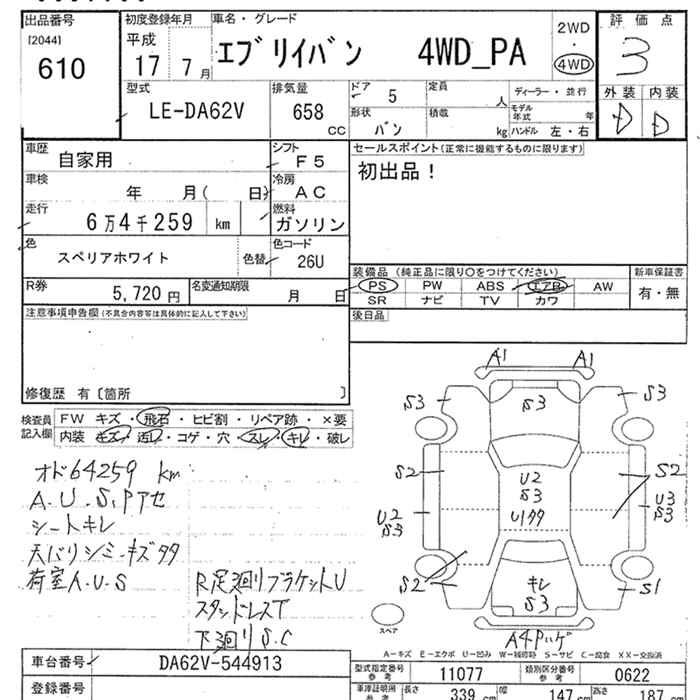 出品番号
[2044]
610
初度登録年月
平成
17 7月
車名・グレード
エブリイバン 4WD_PA
2WD
・
4WD
評価点
3
外装 内装
D D
型式
LE-DA62V
排気量
658
CC
ドア 5
形状 バン
定員 人
積載 kg
ディーラー・並行
モデル年式 年
ハンドル 左・右
車歴 自家用
シフト F5
車検 年 月( 日)
冷房 AC
走行 6万4千259 km
燃料 ガソリン
色 スペリアホワイト 色替
色コード 26U
R券 5,720円
名変通知期限 月 日
セールスポイント(正常に機能するものに限ります)
初出品!
装備品(純正品に限り○をつけてください)
PS PW ABS エアB AW
SR ナビ TV カワ
新車保証書
有・無
後日品
注意事項申告欄(不具合内容等は具体的に記入して下さい)
修復歴 有〔箇所 〕
検査員記入欄
FW キズ・飛石・ヒビ割・リペア跡・×要
内装 キズ・汚レ・コゲ・穴・スレ・キレ・破レ
オド64259 km
A.U.S,Pアセ
シートキレ
天バリシミ・キズタタ
荷室A.U.S
R足廻リブラケットU
スタッドレスT
下廻リS.C
A1 A1
S3 S3 S3
S2 S2
U2
S3
U1タタ
U2
S3
U3
S3
S2 S1
キレ
S3
A4Pハゲ
スペア
A-キズ E-エクボ U-凹み W-補修跡 S-サビ C-腐食 XX-交換済
車台番号 DA62V-544913
登録番号
型式指定番号
参考
11077
類別区分番号
参考
0622
車庫証明用
参考
長さ 339 cm 幅 147 cm 高さ 187 cm